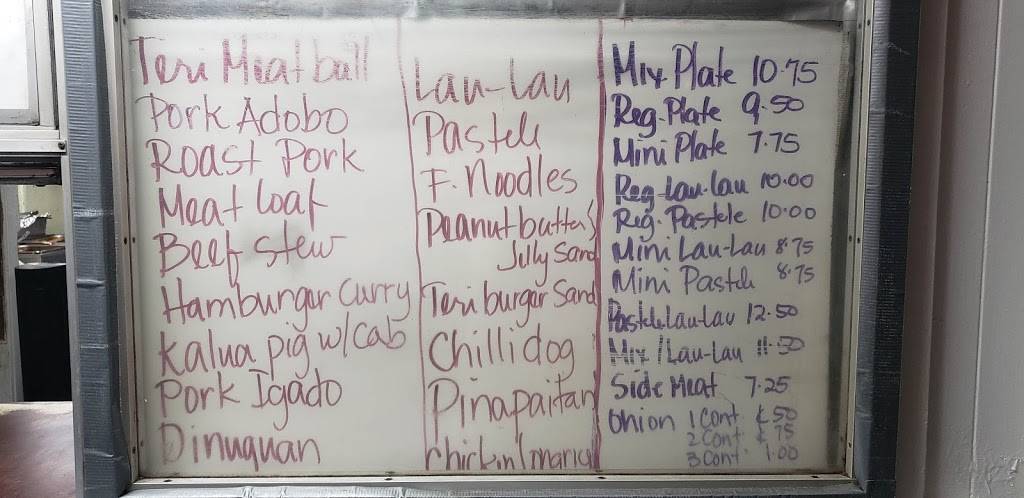 Teri Meatball
Pork Adobo
Roast Pork
Meat loaf
Beef stew
Hamburger Curry
Kalua pig w/cab
Pork Igado
Dinuguan
Lau-Lau
Pastele
F. Noodles
Peanut butter &
Jelly Sand
Teriburger Sand
Chillidog
Pinapaitan
Mix Plate 10.75
Reg. Plate 9.50
Mini Plate 7.75
Reg Lau-Lau 10.00
Reg. Pastele 10.00
Mini Lau-Lau 8.75
Mini Pastele 8.75
Pastele Lau-Lau 12.50
Mix/Lau-Lau 11.50
Side Meat 7.25
Onion 1 Cont ¢ 50
2 Cont ¢ 75
3 Cont 1.00